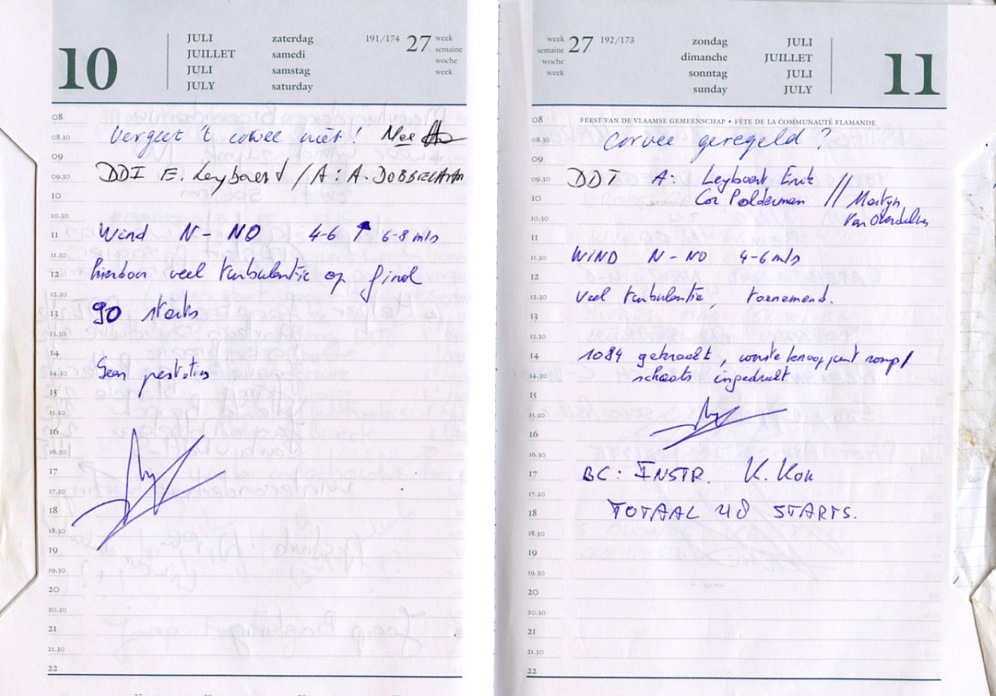 10
JULI zaterdag 191/174 27 week
JUILLET samedi semaine
JULI samstag woche
JULY saturday week
08
08.30 Vergeet 't corvee niet! Nee
09
09.30 DDI E. Leybaert / A: A. DOBBELAER
10
10.30
11 Wind N - NO 4-6 ↑ 6-8 m/s
11.30
12 hierdoor veel turbulentie op final
12.30
13 90 starts
13.30
14
14.30 Geen prestaties
15
15.30
16
16.30
17
17.30
18
18.30
19
19.30
20
20.30
21
21.30
22
week 27 192/173 zondag JULI
semaine dimanche JUILLET
woche sonntag JULI
week sunday JULY
11
08 FEEST VAN DE VLAAMSE GEMEENSCHAP • FÊTE DE LA COMMUNAUTÉ FLAMANDE
08.30 Corvee geregeld?
09
09.30 DDI A: Leybaert Erik
10 Cor Polderman // Martyn
10.30 Van
11
11.30 WIND N - NO 4-6 m/s
12
12.30 Veel turbulentie, toenemend.
13
13.30
14 1084 gekraakt, romp/
14.30 schaats ingedeukt
15
15.30
16
16.30
17 BC: INSTR. K. Kok
17.30
18 TOTAAL 48 STARTS.
18.30
19
19.30
20
20.30
21
21.30
22